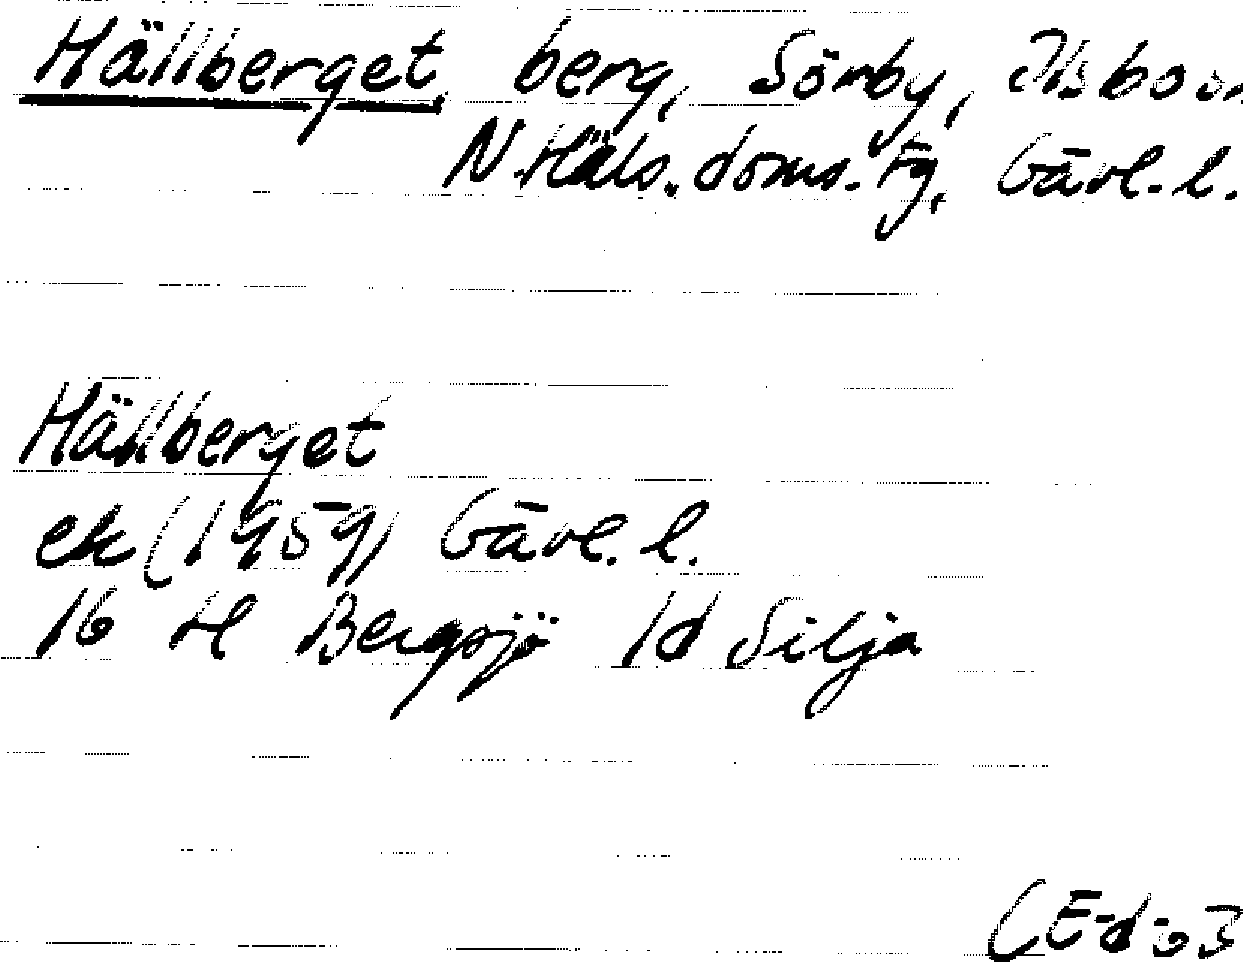 Hällberget, berg, Sörby, Ilsbo sn
N.Häls. doms. fg, Gävl. l.
Hällberget
ek (1959) Gävl. l.
16 H Bergsjö 1d Silja